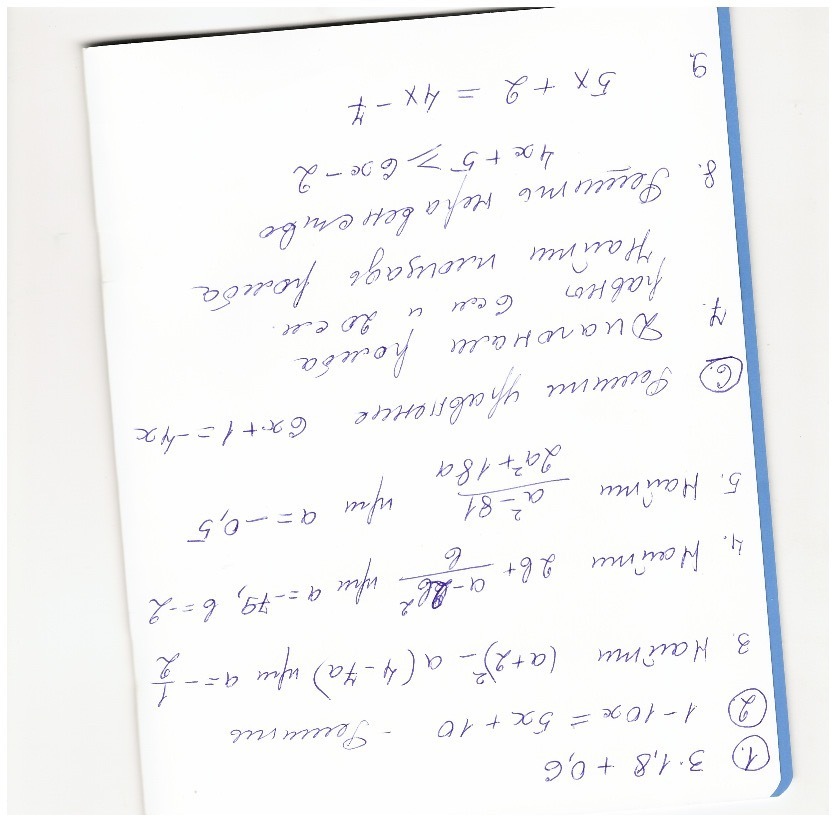 1. 3·1,8 + 0,6
2. 1-10x = 5x + 10 - Решить
3. Найти (a+2)² - a(4-7a) при a = -1/2
4. Найти 2b + (a-2b²)/b при a = -79, b = -2
5. Найти (a²-81)/(2a²+18a) при a = -0,5
6. Решить уравнение 6x+1 = -4x
7. Диагонали ромба
равны 6 см и 20 см.
Найти площадь ромба
8. Решить неравенство
4x + 5 ≥ 6x - 2
9. 5x + 2 = 4x - 7